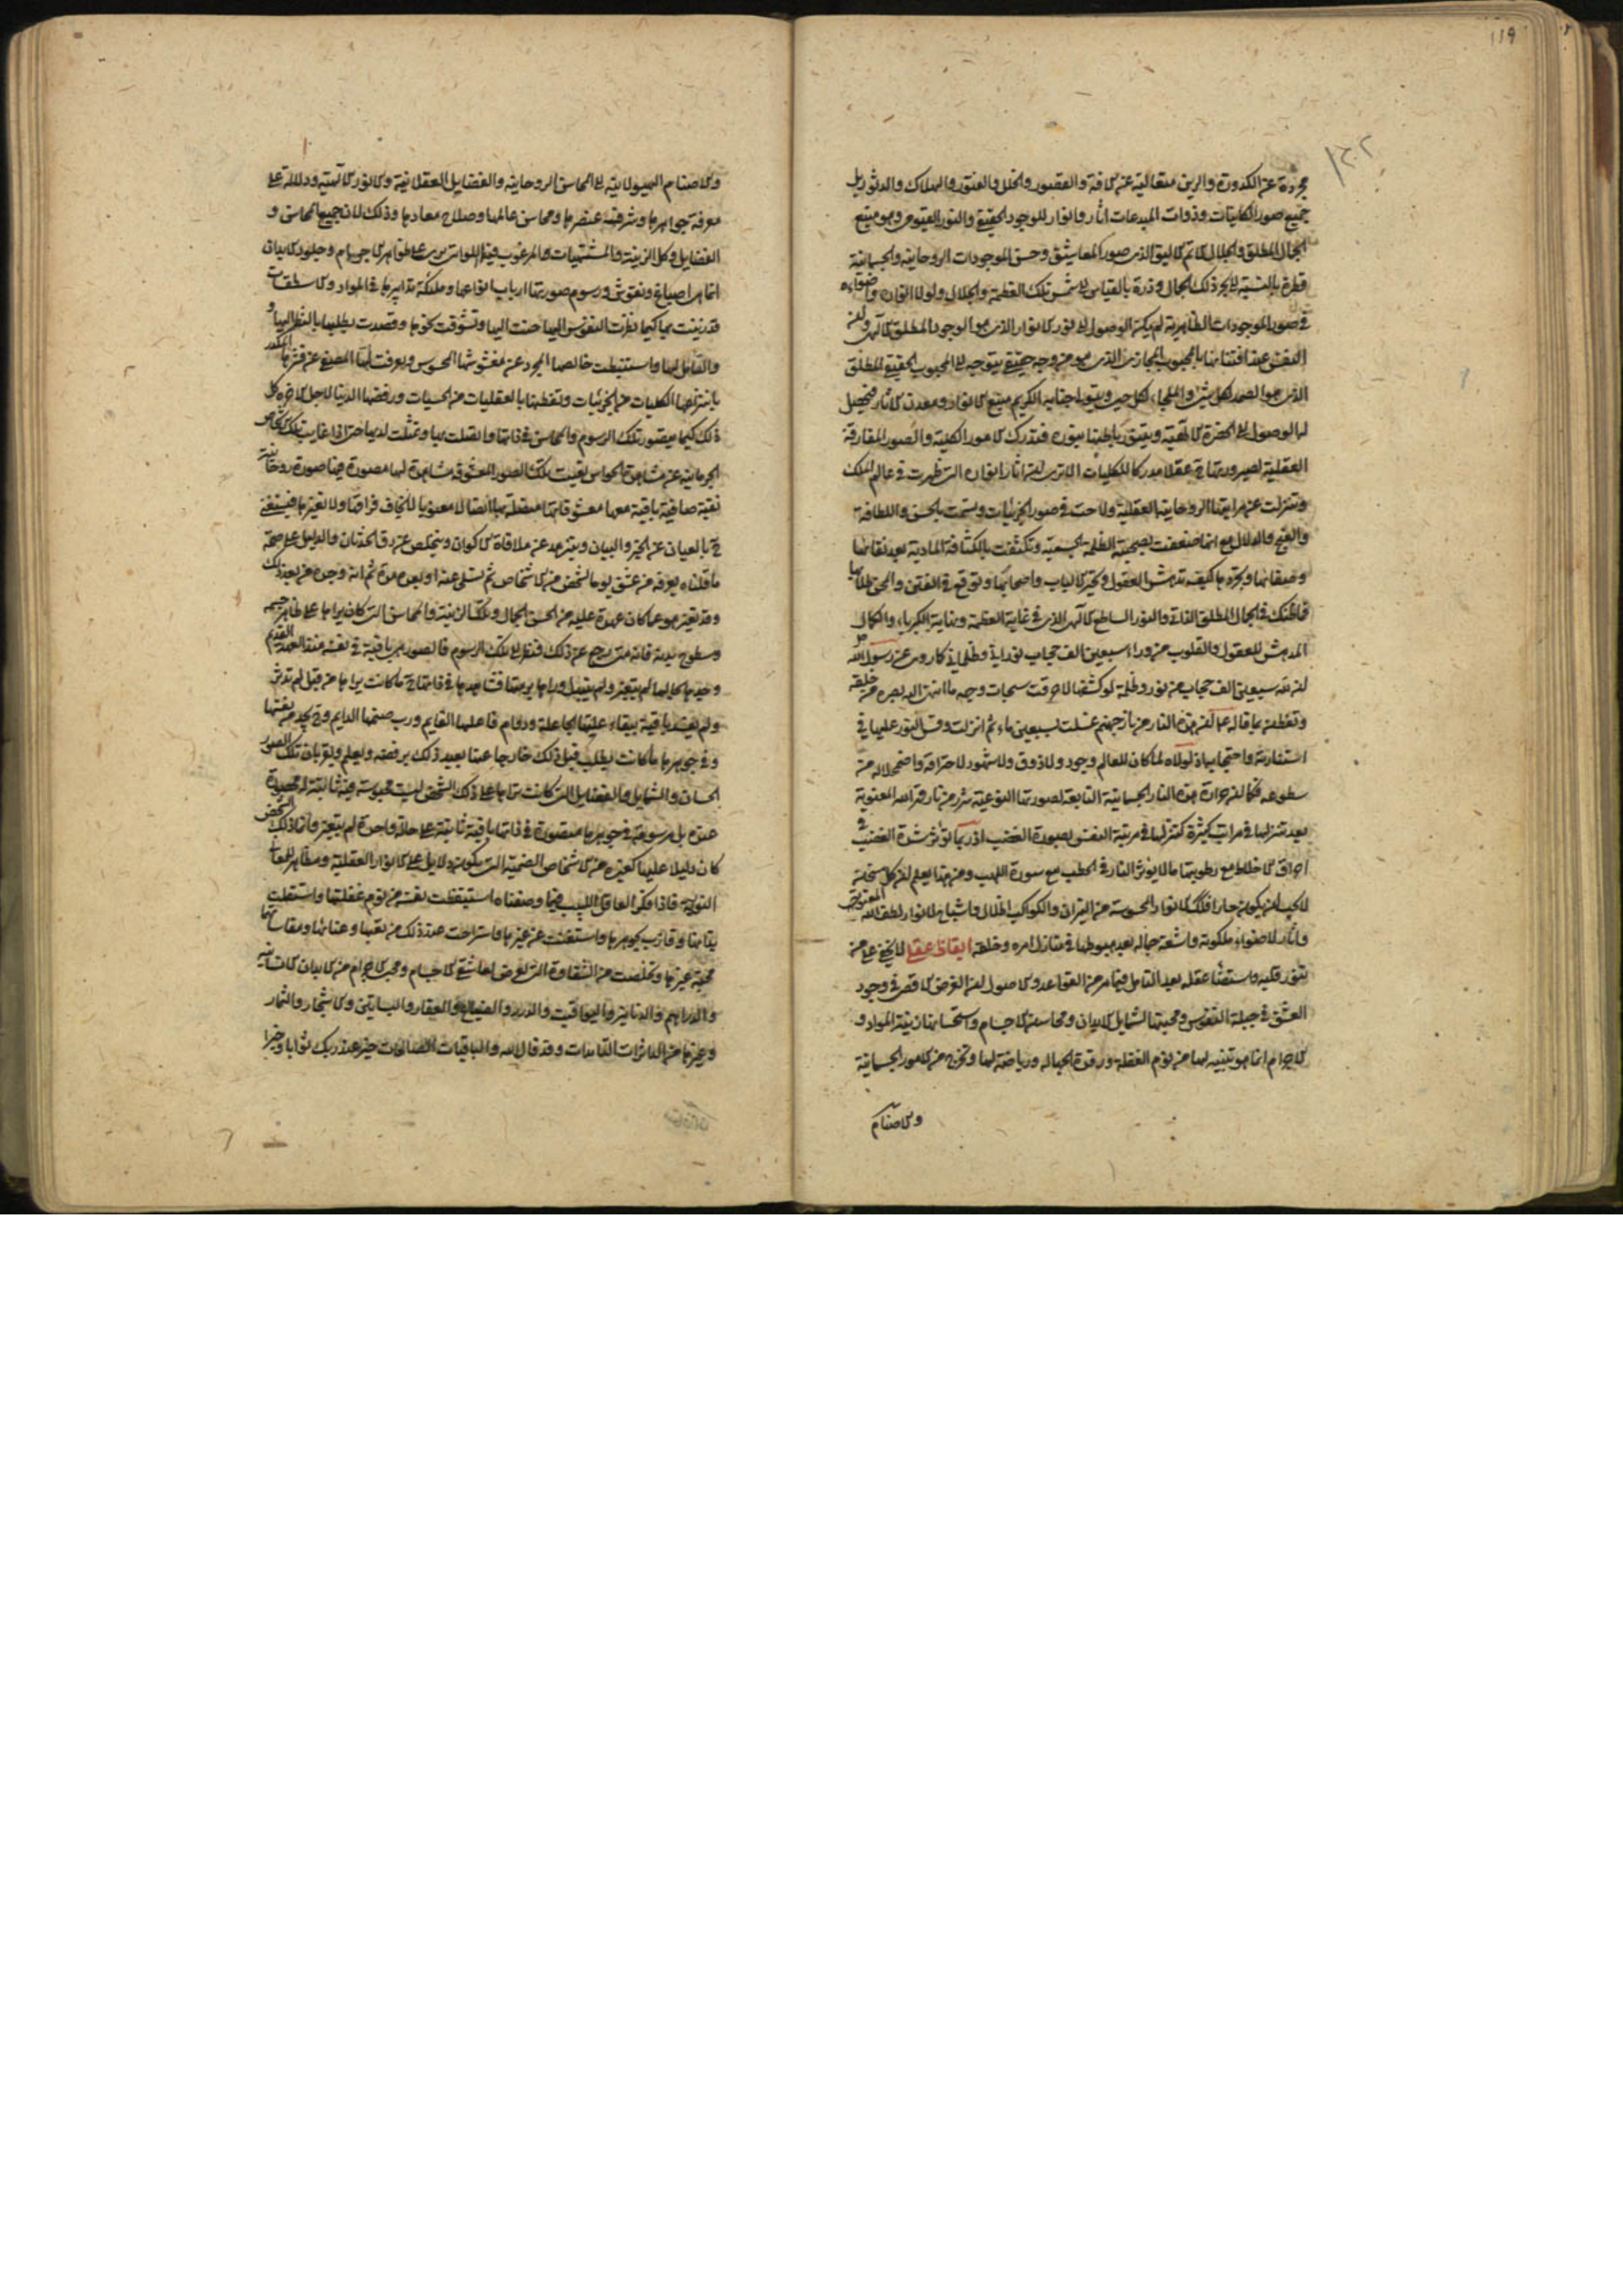 ١١٩
مجردة عن الكدورة والرين متعالية عن الآفة والقصور والخلل والفتور والهلاك والدثور بل
جميع صور الكائنات وذوات المبدعات آثار وأنوار للوجود الحقيقي والنور القيومي وهو منبع
الجمال المطلق والجلال الأتم الأليق الذي صور المعاشيق وحسن الموجودات الروحانية والجسمانية
قطرة بالنسبة إلى بحر ذلك الجمال وذرة بالقياس إلى شمس تلك العظمة والجلال ولولا أنواره وأضواءه
في صور الموجودات الظاهرية لم يكن الوصول إلى نور الأنوار الذي هو الوجود المطلق الإلهي ولأن
النفس عند افتتانها بالمحبوب المجازي الذي هو من وجه حقيقي يتوجه إلى المحبوب الحقيقي المطلق
الذي هو الصمد لكل شيء والملجأ لكل حي ويتولى جنابه الكريم منبع الأنوار ومعدن الآثار فيحصل
لها الوصول إلى الحضرة الإلهية ويتنور باطنها بنوره فتدرك الأمور الكلية والصور المفارقة
العقلية لصيرورتها حينئذ عقلا مدركا للكليات التي آثار أنواره التي ظهرت في عالم الملك
وتنزلت عن مراتبها الروحانية العقلية ولاحت في صور الجزئيات وسمت بالحسن واللطافة
والغنج والدلال مع أنها ضعفت بصحبة الظلمة الجسمية وتكثفت بالكثافة المادية بعد نقائها
وصفائها وتجردها كيف تدهش العقول وتحير الألباب وأصحابها وتوقع في الفتن والمحن طلابها
فما ظنك في الجمال المطلق الذاتي والنور الساطع الإلهي الذي في غاية العظمة ونهاية الكبرياء والكمال
المدهش للعقول والقلوب من وراء سبعين ألف حجاب نورانية وظلمانية كما روي عن رسول الله ص
أن لله سبعين ألف حجاب من نور وظلمة لو كشفها لأحرقت سبحات وجهه ما انتهى إليه بصره من خلقه
وتفطن بما قاله ع أن هذه النار من نار جهنم غسلت بسبعين ماء ثم أنزلت وقس النور عليها في
استنارته واحتجابها إذ لولاه لما كان للعالم وجود ولا ذوق ولا شهود لاحتراقه واضمحلاله من
سطوعه فكما أن حرارة هذه النار الجسمانية التابعة لصورتها النوعية شرر من نار قهر الله المعنوية
بعد تنزلها في مراتب كثيرة كتنزلها في مرتبة النفس بصورة الغضب إذ ربما تؤثر شدة الغضب في
إحراق الأخلاط مع رطوبتها ما لا يؤثر النار في الحطب مع سورة اللهب ومن هذا يعلم أن كل مسخن
لا يجب أن يكون حارا فكذلك الأنوار المحسوسة من النيران والكواكب أظلال وأشباح لأنوار لطف الله المعنوية
وآثار لأضواء ملكوته وأشعة جماله بعد هبوطها في منازل أمره وخلقه إيقاظ عقلي لا يخفى على من
تنور قلبه واستضاء عقله بعد التأمل فيما مر من القواعد والأصول أن الغرض الأقصى في وجود
العشق في جبلة النفوس ومحبتها لشمايل الأبدان ومحاسن الأجسام واستحسانها زينة المواد و
الأجرام إنما هو تنبيه لها من نوم الغفلة ورقدة الجهالة ورياضة لها وتخرج من الأمور الجسمانية
والأصنام
والأصنام الهيولانية إلى المحاسن الروحانية والفضايل العقلانية والأنوار الإلهية ودلالة على
معرفة جواهرها وشرف عنصرها ومحاسن عالمها وصلاح معادها وذلك لأن جميع المحاسن و
الفضايل وكل الزينة والمشتهيات والمرغوب فيها اللواتي يرى على ظواهر الأجرام وجلود الأبدان
إنما هي أصباغ ونقوش ورسوم صورتها أرباب أنواعها وملائكة تدابيرها في المواد والأسطقسات
قد زينت بها كيما نظرت النفوس إليها حنت إليها وتشوقت نحوها وقصدت بطلبها بالنظر إليها و
والتأمل لها واستنبطت خالصها المجرد عن مغشوشها المحسوس وتعرفت لبها المصفى عن قشرها المكدر
بانتزاعها الكليات من الجزئيات وتفطنها بالعقليات من الحسيات ورفضها الدنيا لأجل الآخرة كل
ذلك كيما يتصور تلك الرسوم والمحاسن في ذاتها واتصلت بها وتمثلت لديها حتى إذا غابت تلك الأشخاص
الجرمانية عن مشاهدة الحواس بقيت تلك الصور المعشوقة مشاهدة لها مصورة فيها صورة روحانية
نقية صافية باقية معها معشوقاتها متصلة بها اتصالا معنويا لا يخاف فراقها ولا تغيرها فيستغني
ح بالعيان عن الخبر والبيان ويزهد عن ملاقاة الأكوان ويتخلص عن رق الحدثان والدليل على صحة
ما قلناه يعرفه من عشق يوما لشخص من الأشخاص ثم تسلى عنه أو فقده مدة ثم أنه وجده من بعد ذلك
وقد تغير هو عما كان عهده عليه من الحسن والجمال وتلك الزينة والمحاسن التي كان يراها على ظاهر جسمه
وسطوح بدنه فإنه متى رجع عن ذلك فنظر إلى تلك الرسوم والصور هي باقية في نفسه منذ العهد القديم
وجدها بحالها لم يتغير ولم يتبدل ورآها برمتها فتشاهدها في ذاتها ح ما كانت يراها من قبل لم تدثر
ولم يفسد باقية ببقاء علتها الجاعلة ودوام فاعلها القايم ورب صنمها الدايم وح يجد من نفسها
وفي جوهرها ما كانت يطلب قبل ذلك خارجا عنها بعيد ذلك يرفضه ويعلم ويقر بأن تلك الصور
الحسان والشمايل والفضايل التي كانت تراها على ذلك الشخص ليست محبوسة فيه ثابتة له محصورة
عنده بل مرسومة في جوهرها متصورة في ذاتها باقية ثابتة على حالة واحدة لم يتغير وإنما ذلك الشخص
كان دليلا عليها كغيره من الأشخاص الصنمية التي يكون دلايل على الأنوار العقلية ومظاهر للمعاني
النورية فإذا فكر العاقل اللبيب فيما وصفناه استيقظت نفسه من نوم غفلتها واستقلت
بذاتها وفازت بجوهرها واستغنت عن غيرها واستراحت عند ذلك من تعبها وعنائها ومقاساتها
محبة غيرها وتخلصت من الشقاوة التي تعرض لعاشقي الأجسام ومحبي الأجرام من الأبدان الإنسانية
والدراهم والدنانير واليواقيت والدرر والضياع والعقار والبساتين والأشجار والثمار
وغيرها من الداثرات البائدات وقد قال الله والباقيات الصالحات خير عند ربك ثوابا وخير